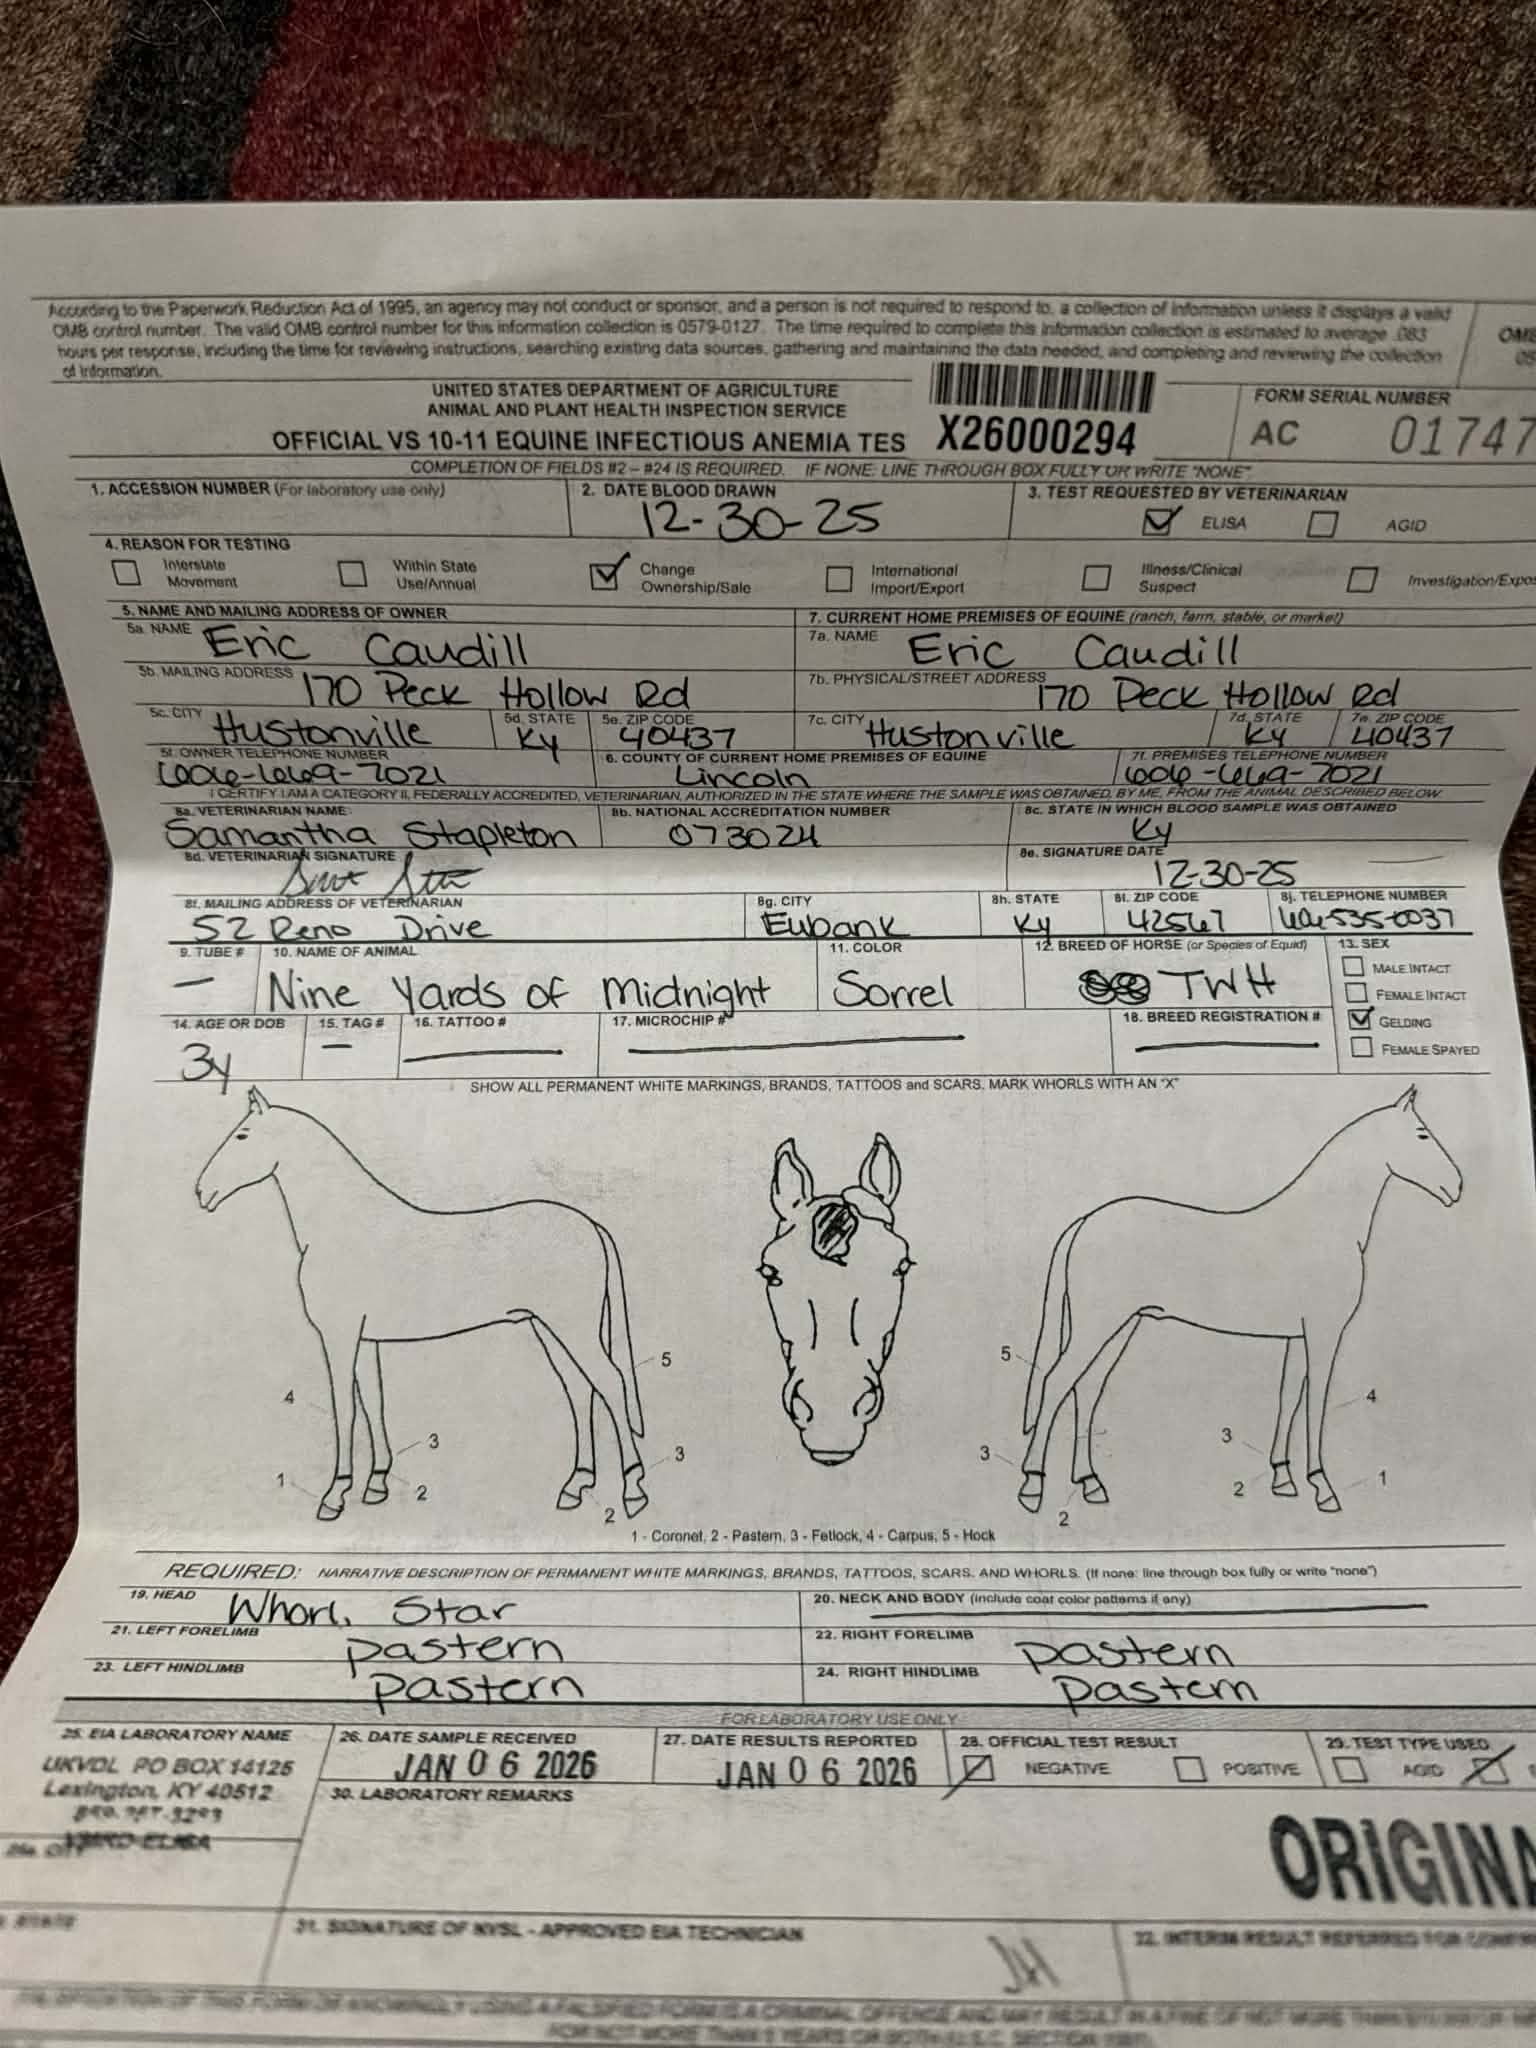 According to the Paperwork Reduction Act of 1995, an agency may not conduct or sponsor, and a person is not required to respond to, a collection of information unless it displays a valid
OMB control number. The valid OMB control number for this information collection is 0579-0127. The time required to complete this information collection is estimated to average .083
hours per response, including the time for reviewing instructions, searching existing data sources, gathering and maintaining the data needed, and completing and reviewing the collection
of information.
OMB
UNITED STATES DEPARTMENT OF AGRICULTURE
ANIMAL AND PLANT HEALTH INSPECTION SERVICE
OFFICIAL VS 10-11 EQUINE INFECTIOUS ANEMIA TES
X26000294
FORM SERIAL NUMBER
AC 01747
COMPLETION OF FIELDS #2 – #24 IS REQUIRED. IF NONE: LINE THROUGH BOX FULLY OR WRITE "NONE".
1. ACCESSION NUMBER (For laboratory use only)
2. DATE BLOOD DRAWN
12-30-25
3. TEST REQUESTED BY VETERINARIAN
ELISA AGID
4. REASON FOR TESTING
Interstate Movement
Within State Use/Annual
Change Ownership/Sale
International Import/Export
Illness/Clinical Suspect
Investigation/Expos
5. NAME AND MAILING ADDRESS OF OWNER
7. CURRENT HOME PREMISES OF EQUINE (ranch, farm, stable, or market)
5a. NAME Eric Caudill
7a. NAME Eric Caudill
5b. MAILING ADDRESS 170 Peck Hollow Rd
7b. PHYSICAL/STREET ADDRESS 170 Peck Hollow Rd
5c. CITY Hustonville
5d. STATE Ky
5e. ZIP CODE 40437
7c. CITY Hustonville
7d. STATE Ky
7e. ZIP CODE 40437
5f. OWNER TELEPHONE NUMBER 606-669-7021
6. COUNTY OF CURRENT HOME PREMISES OF EQUINE Lincoln
7f. PREMISES TELEPHONE NUMBER 606-669-7021
I CERTIFY I AM A CATEGORY II, FEDERALLY ACCREDITED, VETERINARIAN, AUTHORIZED IN THE STATE WHERE THE SAMPLE WAS OBTAINED, BY ME, FROM THE ANIMAL DESCRIBED BELOW.
8a. VETERINARIAN NAME: Samantha Stapleton
8b. NATIONAL ACCREDITATION NUMBER 073024
8c. STATE IN WHICH BLOOD SAMPLE WAS OBTAINED Ky
8d. VETERINARIAN SIGNATURE
8e. SIGNATURE DATE 12-30-25
8f. MAILING ADDRESS OF VETERINARIAN 52 Reno Drive
8g. CITY Eubank
8h. STATE Ky
8i. ZIP CODE 42567
8j. TELEPHONE NUMBER 606-535-0037
9. TUBE # –
10. NAME OF ANIMAL Nine Yards of Midnight
11. COLOR Sorrel
12. BREED OF HORSE (or Species of Equid) TWH
13. SEX
MALE INTACT
FEMALE INTACT
GELDING
FEMALE SPAYED
14. AGE OR DOB 3y
15. TAG # –
16. TATTOO #
17. MICROCHIP #
18. BREED REGISTRATION #
SHOW ALL PERMANENT WHITE MARKINGS, BRANDS, TATTOOS and SCARS. MARK WHORLS WITH AN "X"
5 5
4 4
3 3 3 3
1 2 2 2 2 1
1 - Coronet, 2 - Pastern, 3 - Fetlock, 4 - Carpus, 5 - Hock
REQUIRED: NARRATIVE DESCRIPTION OF PERMANENT WHITE MARKINGS, BRANDS, TATTOOS, SCARS. AND WHORLS. (If none: line through box fully or write "none")
19. HEAD Whorl, Star
20. NECK AND BODY (include coat color patterns if any)
21. LEFT FORELIMB pastern
22. RIGHT FORELIMB pastern
23. LEFT HINDLIMB pastern
24. RIGHT HINDLIMB pastern
FOR LABORATORY USE ONLY
25. EIA LABORATORY NAME
UKVDL PO BOX 14125
Lexington, KY 40512
26. DATE SAMPLE RECEIVED
JAN 06 2026
27. DATE RESULTS REPORTED
JAN 06 2026
28. OFFICIAL TEST RESULT
NEGATIVE POSITIVE
29. TEST TYPE USED
AGID
30. LABORATORY REMARKS
ORIGINA
31. SIGNATURE OF NVSL - APPROVED EIA TECHNICIAN
JH